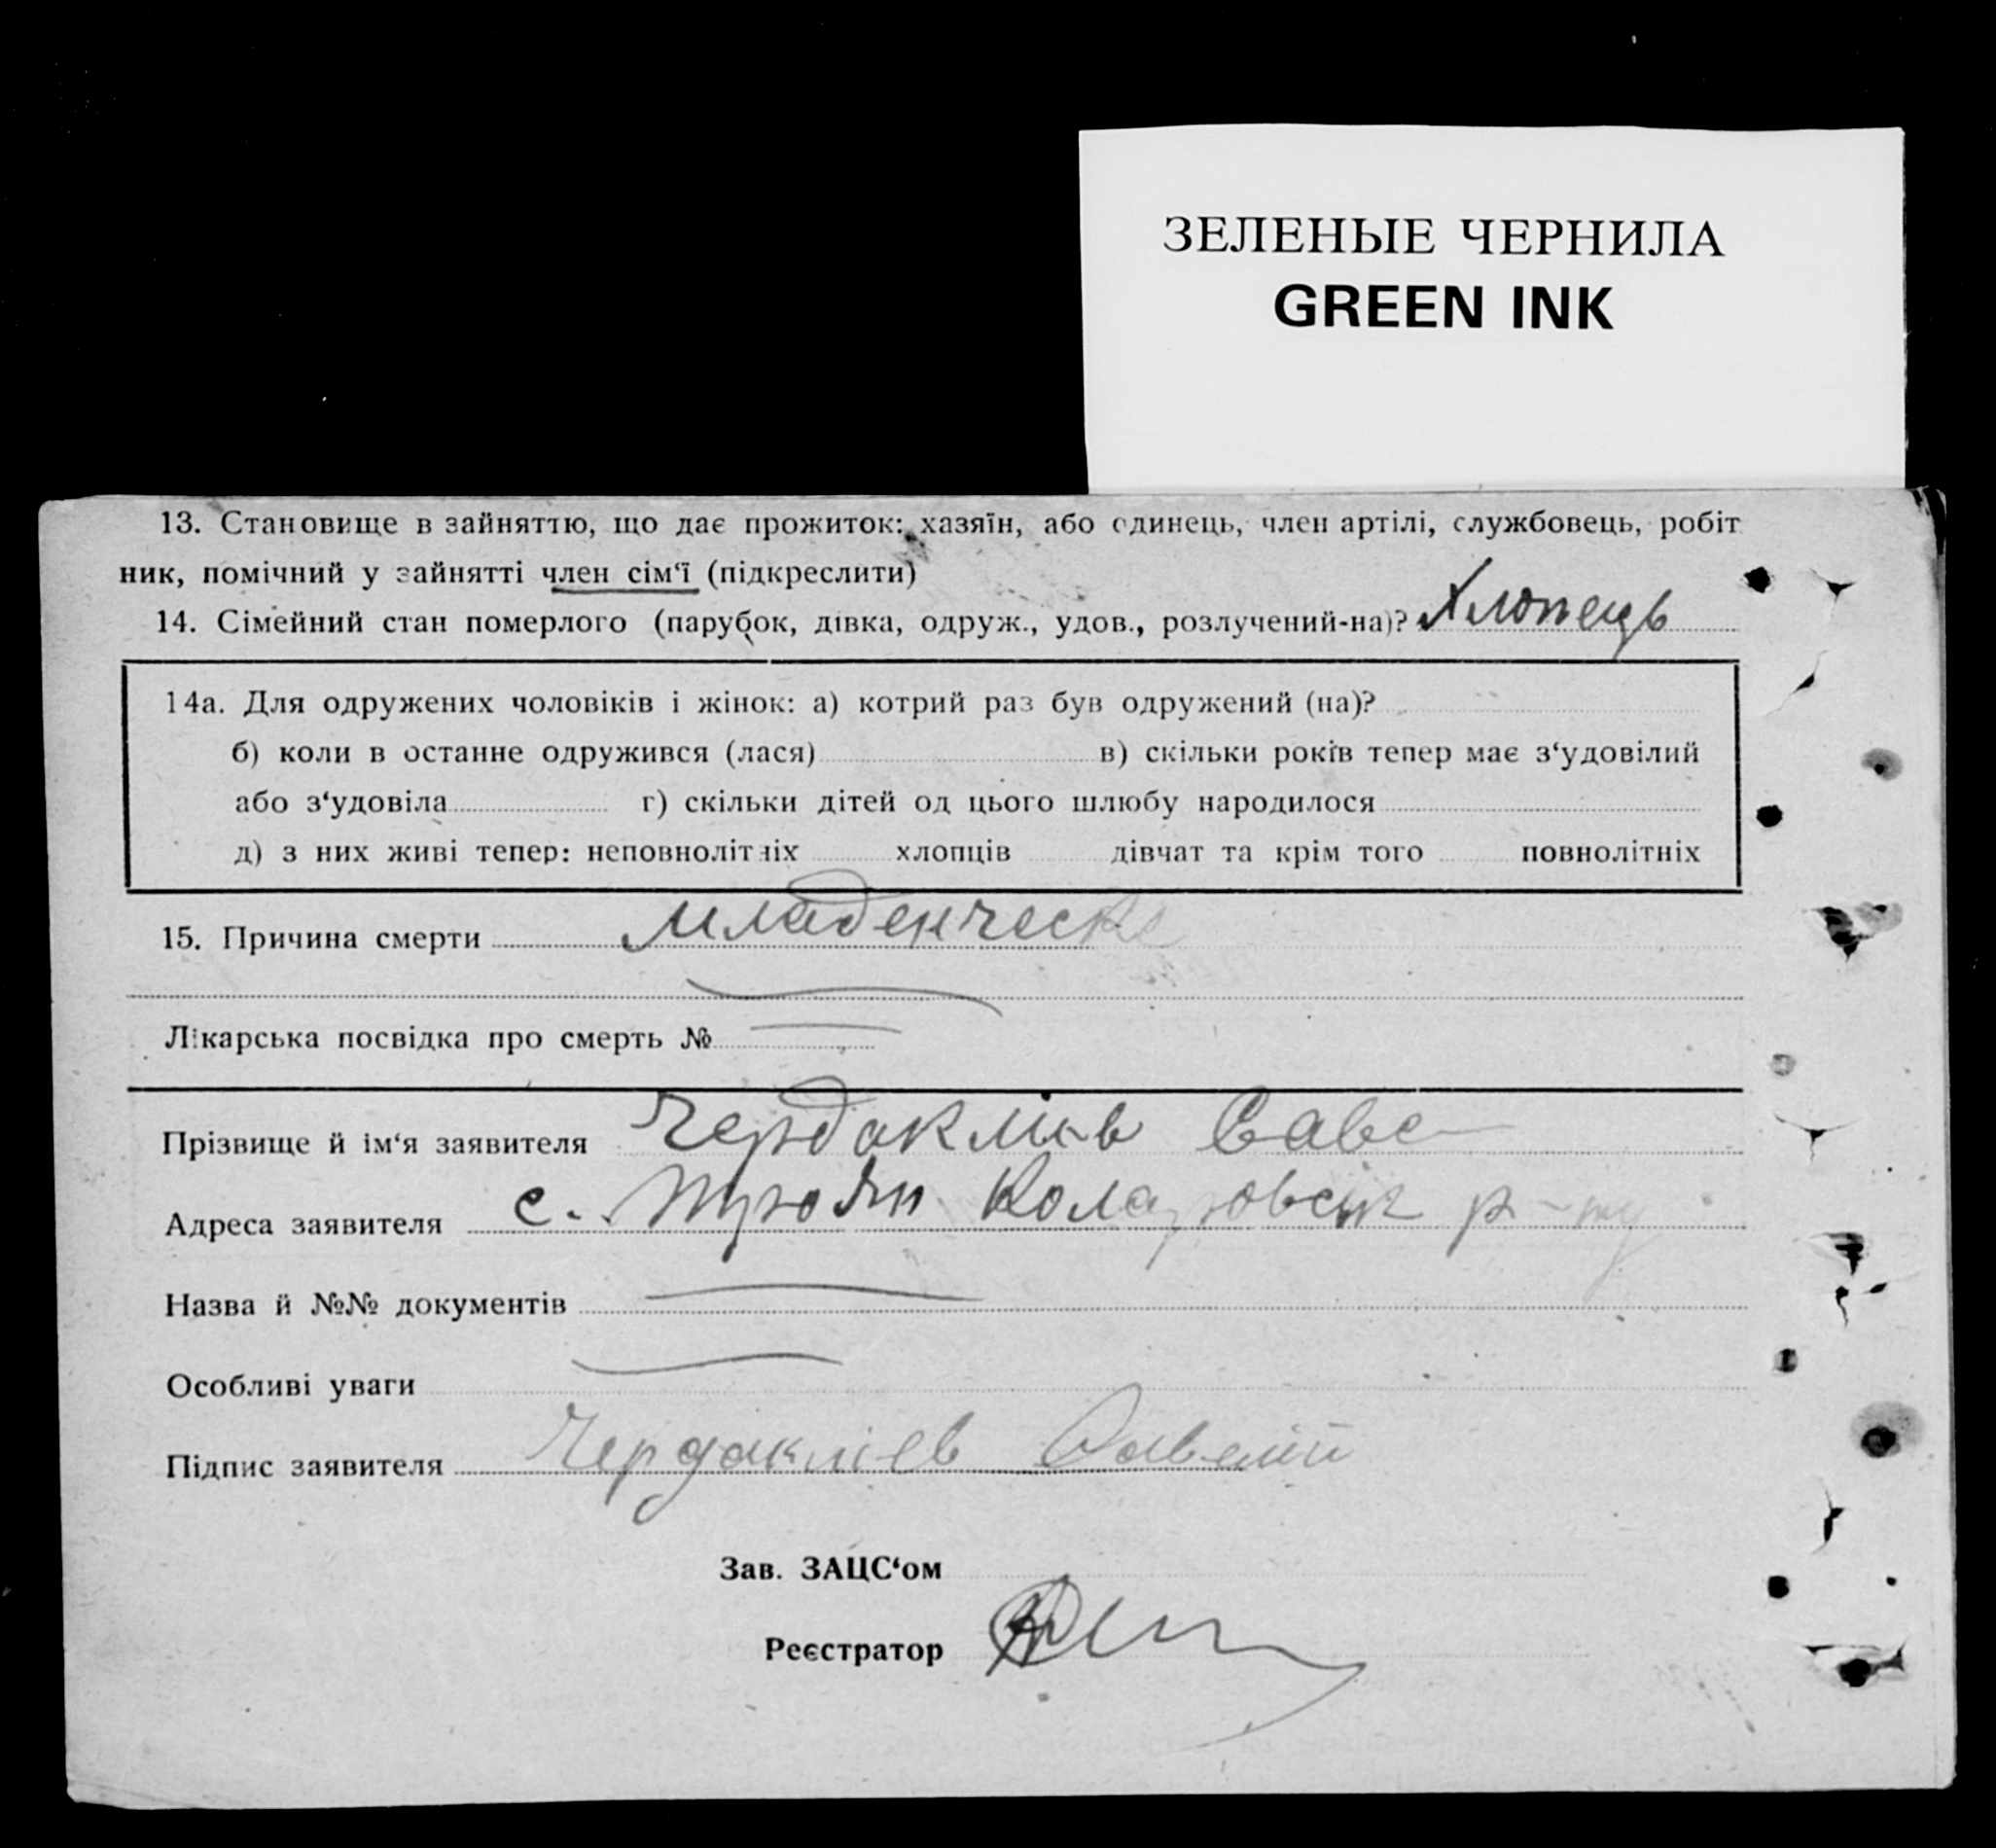 ЗЕЛЕНЫЕ ЧЕРНИЛА
GREEN INK
13. Становище в зайняттю, що дає прожиток: хазяїн, або одинець, член артілі, службовець, робіт
ник, помічний у зайнятті член сім‘ї (підкреслити)
14. Сімейний стан померлого (парубок, дівка, одруж., удов., розлучений-на)? Хлопець
14а. Для одружених чоловіків і жінок: а) котрий раз був одружений (на)?
б) коли в останне одружився (лася) в) скільки років тепер має з‘удовілий
або з‘удовіла г) скільки дітей од цього шлюбу народилося
д) з них живі тепер: неповнолітніх хлопців дівчат та крім того повнолітніх
15. Причина смерти младенческа
Лікарська посвідка про смерть №
Прізвище й ім‘я заявителя Чердаклієв Саве
Адреса заявителя с. Троян Коларовськ р-ну
Назва й №№ документів
Особливі уваги
Підпис заявителя Чердаклієв Савелій
Зав. ЗАЦС‘ом
Реєстратор